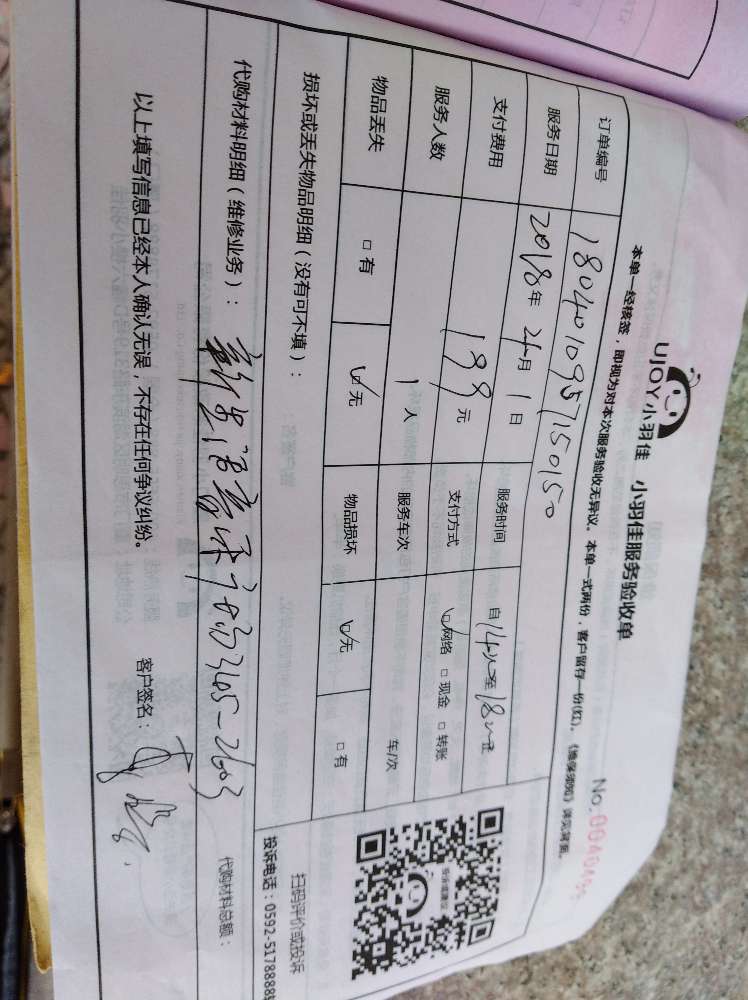 UJOY小羽佳 小羽佳服务验收单
No:0040495
本单一经核签，即视为对本次服务验收无异议。本单一式两份，客户留存一份(红)。《维保须知》详见背面。
订单编号 1804010957150150
服务日期 2018年 4月 1日 服务时间 自14:00至18:00
支付费用 199元 支付方式 ☑网络 □现金 □转账
服务人数 1人 服务车次 车/次
物品丢失 □有 ☑无 物品损坏 ☑无 □有
损坏或丢失物品明细（没有可不填）：
代购材料明细（维修业务）： 345-2603
代购材料总额：
扫码评价或投诉
投诉电话：0592-5178888
以上填写信息已经本人确认无误，不存在任何争议纠纷。
客户签名：